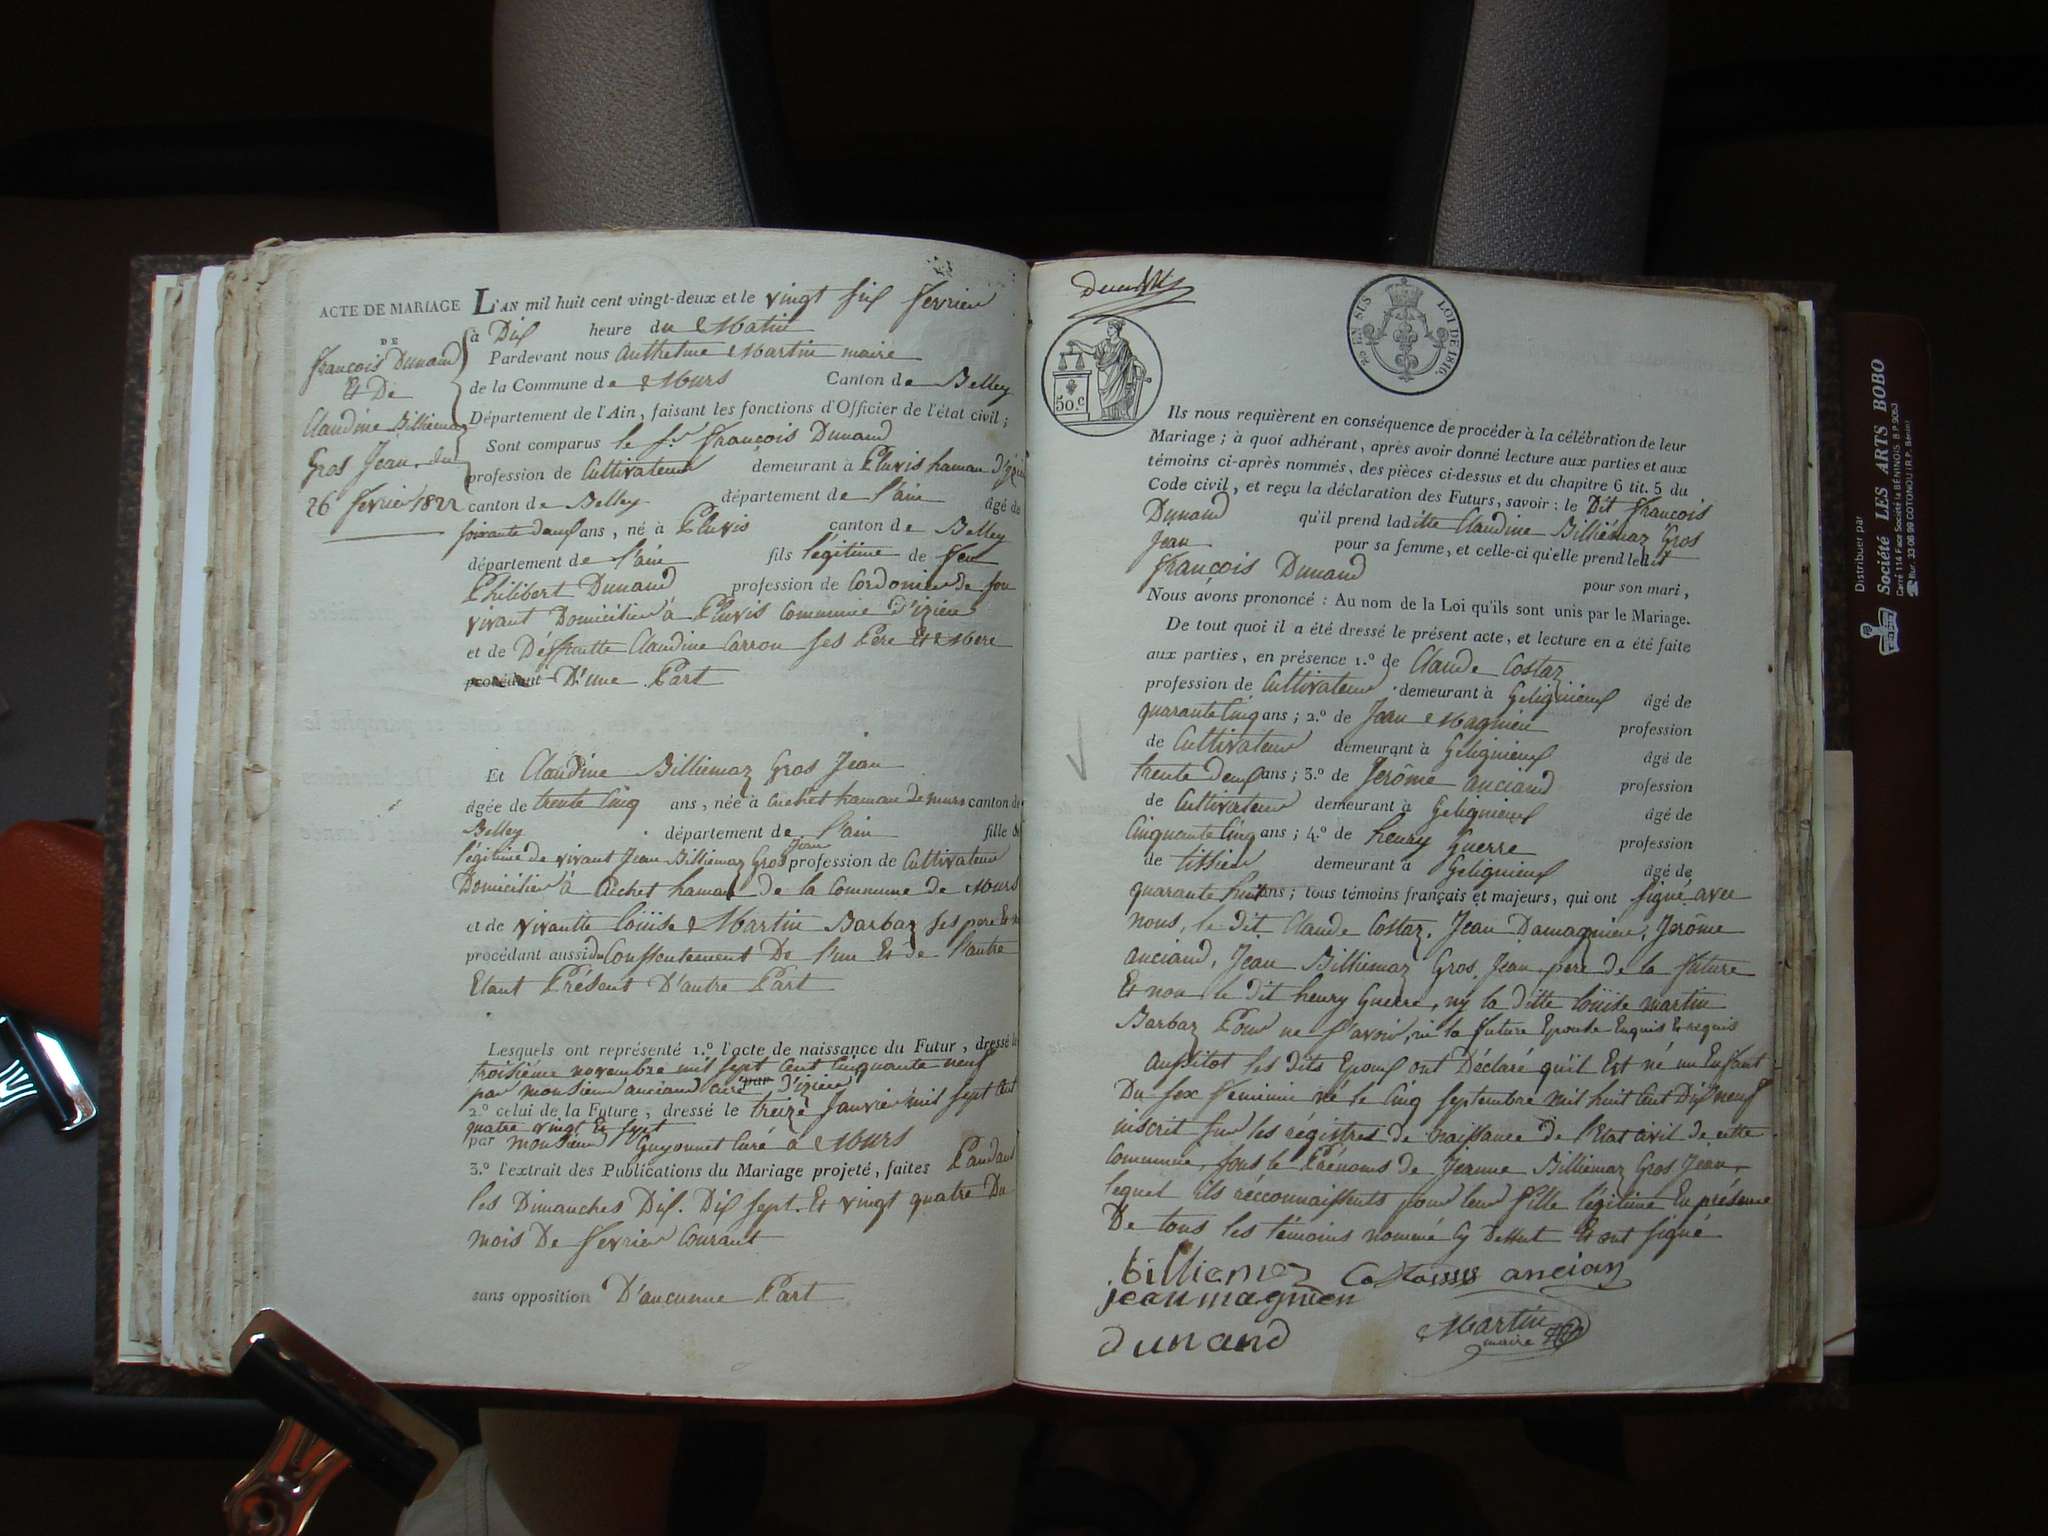 ACTE DE MARIAGE
DE
françois Dunand
Et De
Claudine Billiemaz
Gros Jean, du
26 fevrier 1822
L'AN mil huit cent vingt-deux et le vingt six fevrier
à Dix heure du Matin
Pardevant nous Anthelme Martin maire
de la Commune de Murs Canton de Belley
Département de l'Ain, faisant les fonctions d'Officier de l'état civil;
Sont comparus le Sr. françois Dunand
profession de Cultivateur demeurant à Pluvis hamau d'izieu
canton de Belley département de l'ain âgé de
soixante deux ans, né à Pluvis canton de Belley
département de l'ain fils légitime de feu
Philibert Dunand profession de Cordonier De son
vivant Domicilier à Pluvis Commune d'izieu
et de Déffuntte Claudine Carron ses Pere Et Mere
procédant D'une Part
Et Claudine Billiemaz Gros Jean
âgée de trente Cinq ans, née à Cuchet hamau de murs canton de
Belley département de l'ain fille
légitime de vivant Jean Billiemaz Gros Jean profession de Cultivateur
Domicilier à Cuchet hamau de la Commune de Murs
et de vivantte Loüise Martin Barbaz ses pere Et
procédant aussi du Conssentement De l'un Et de l'autre
Etant Présent D'autre Part
Lesquels ont représenté 1.º l'acte de naissance du Futur, dressé le
troisieme novembre mil sept Cent Cinquante neuf
par monsieur anciand curé par d'izieu
2.º celui de la Future, dressé le treize Janvier mil sept Cent
quatre vingt Et sept
par monsieur Guyonnet Curé à Murs
3.º l'extrait des Publications du Mariage projeté, faites Pandant
les Dimanches Dix. Dix sept. Et vingt quatre Du
mois De fevrier Courant
sans opposition D'aucunne Part
50.c
EN SUS
LOI DE 1816.
Ils nous requièrent en conséquence de procéder à la célébration de leur
Mariage; à quoi adhérant, après avoir donné lecture aux parties et aux
témoins ci-après nommés, des pièces ci-dessus et du chapitre 6 tit. 5 du
Code civil, et reçu la déclaration des Futurs, savoir: le Dit françois
Dunand qu'il prend laditte Claudine Billiémaz Gros
Jean pour sa femme, et celle-ci qu'elle prend ledit
françois Dunand pour son mari,
Nous avons prononcé: Au nom de la Loi qu'ils sont unis par le Mariage.
De tout quoi il a été dressé le présent acte, et lecture en a été faite
aux parties, en présence 1.º de Claude Costaz
profession de Cultivateur demeurant à Gelignieux âgé de
quarante Cinq ans; 2.º de Jean Magnien profession
de Cultivateur demeurant à Geligneux âgé de
trente Deux ans; 3.º de Jerôme anciand profession
de Cultivateur demeurant à Geligneux âgé de
Cinquante Cinq ans; 4.º de henry Guerre profession
de tissier demeurant à Geligneux âgé de
quarante huit ans; tous témoins français et majeurs, qui ont signé avec
nous, le dit Claude Costaz. Jean Damagnien, Jerôme
anciand, Jean Billiemaz Gros Jean pere de la future
Et non le dit henry Guerre, ny la ditte loüise martin
Barbaz Pour ne savoir, ni la future Epouse Enquis Et requis
Aussitot les dits Epoux ont Déclaré qu'il Est né un Enfant
Du sex féminin né le Cinq septembre mil huit Cent Dix neuf
inscrit sur les régistres de naissance de l'Etat civil de cette
Commune, sous le Prénoms de Jeanne Billiemaz Gros Jean,
lequel ils réconnaissents pour leur fille légitime En présence
De tous les témoins nommé cy Dessut Et ont signé
billiemaz anciau
jean magnien
Dunand
Martin
maire
Distribuer par
Société LES ARTS BOBO
Carré 114 Face Société la BÉNINOIS. B.P.9053
Rur. 33 06 99 COTONOU (R.P. Bénin)